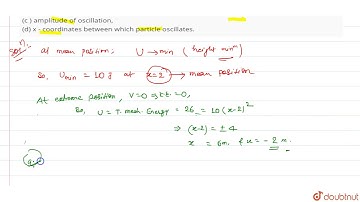 (c ) amplitude of oscillation,
(d) x - coordinates between which particle oscillates.
Solⁿ.
at mean position; U → min ( height minᵐ )
So, Umin = 10 J at x=2 → mean position
At extreme position, V=0 ⇒ K.E. =0,
So, U = T. mech. Energy = 26 = 10 (x-2)²
⇒ (x-2) = ± 4
x = 6m, & x = - 2 m.
doubtnut